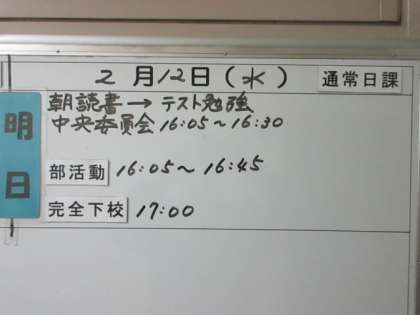 2月12日(水) 通常日課
明日
朝読書→テスト勉強
中央委員会 16:05〜16:30
部活動 16:05〜16:45
完全下校 17:00